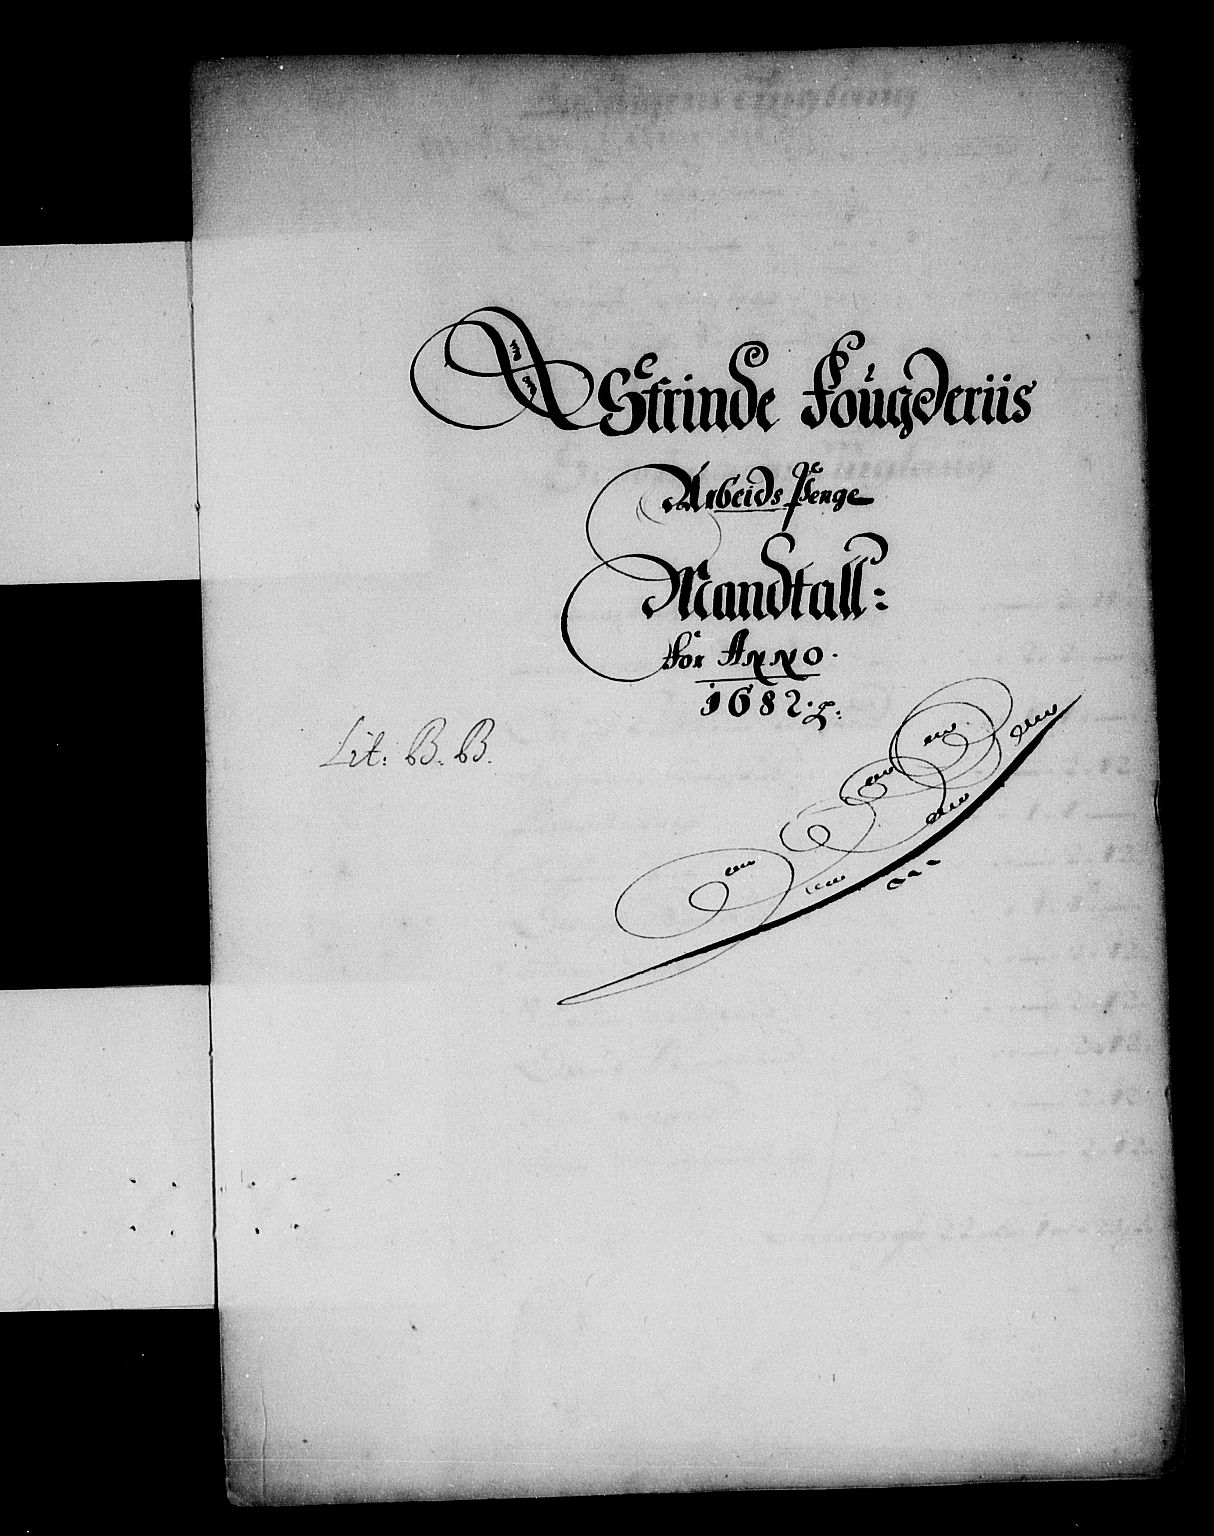 Strinde Fougderiis
Arbeids Penge
Mandtall:
for Anno.
1682.
Lit: B. B.